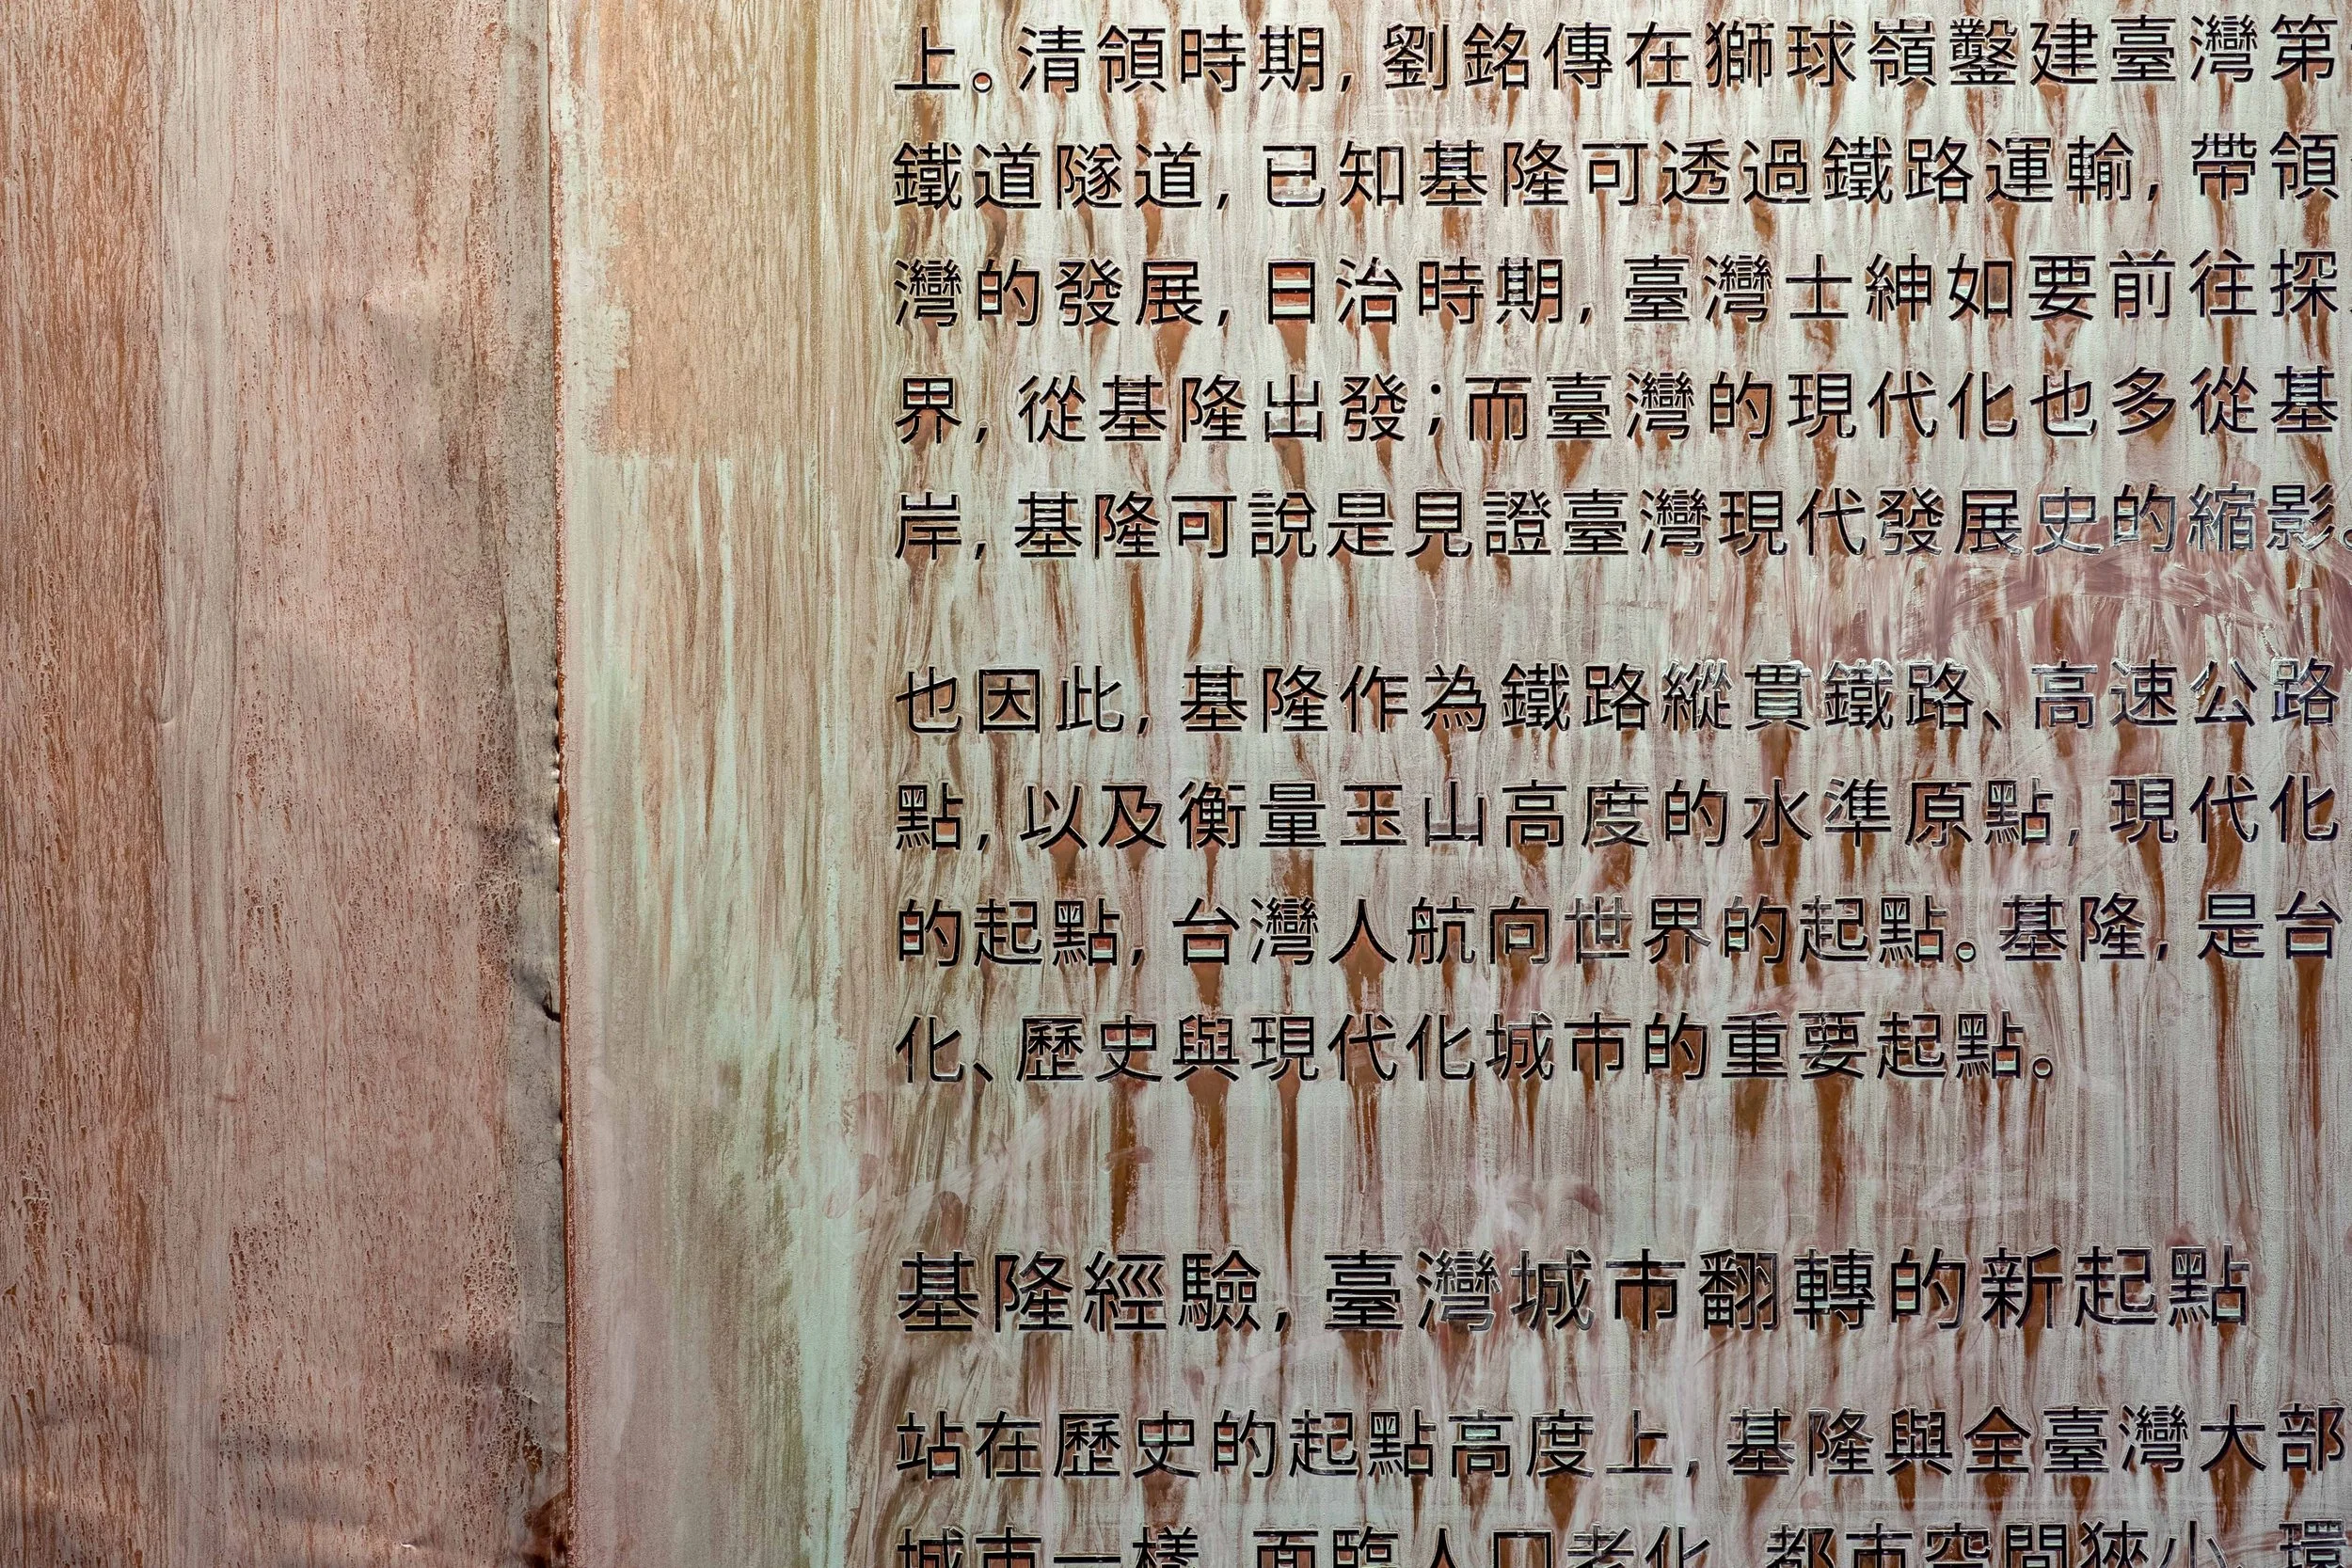 上。清領時期，劉銘傳在獅球嶺鑿建臺灣第
鐵道隧道，已知基隆可透過鐵路運輸，帶領
灣的發展，日治時期，臺灣士紳如要前往探
界，從基隆出發；而臺灣的現代化也多從基
岸，基隆可說是見證臺灣現代發展史的縮影。
也因此，基隆作為鐵路縱貫鐵路、高速公路
點，以及衡量玉山高度的水準原點，現代化
的起點，台灣人航向世界的起點。基隆，是台
化、歷史與現代化城市的重要起點。
基隆經驗，臺灣城市翻轉的新起點
站在歷史的起點高度上，基隆與全臺灣大部
城市一樣，面臨人口老化，都市空間狹小，環